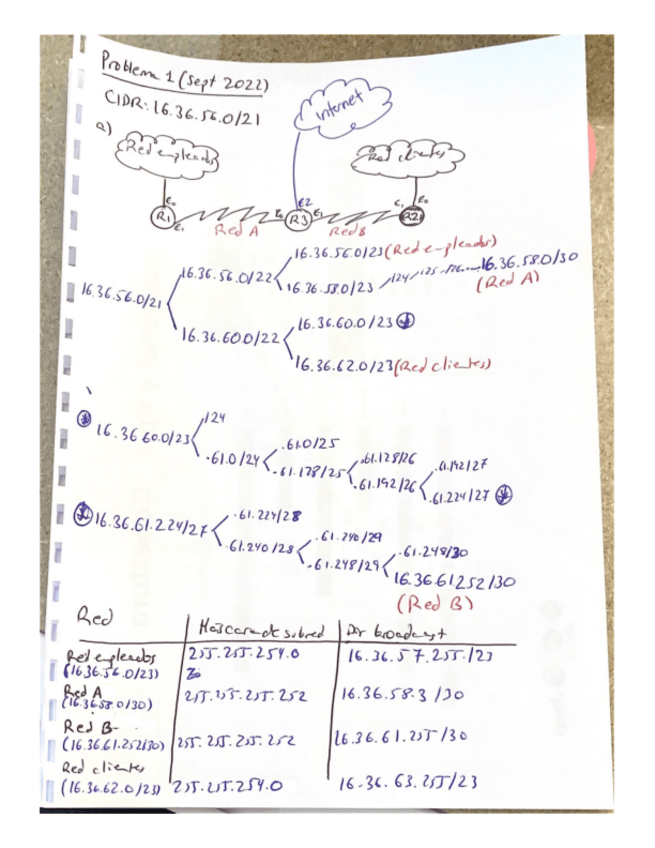 Problema 1 (Sept 2022)
CIDR: 16.36.56.0/21
a)
Internet
Red empleados
Red clientes
E0 E2 E1 E0
R1 E1 E0 R3 E1 R2
Red A Red B
16.36.56.0/23 (Red empleados)
16.36.56.0/22
16.36.58.0/23 /24 /25 /26 .... 16.36.58.0/30
(Red A)
16.36.56.0/21
16.36.60.0/23
16.36.60.0/22
16.36.62.0/23 (Red clientes)
/24
16.36.60.0/23
.61.0/25
.61.0/24
.61.128/26
.61.128/25
.61.192/27
.61.192/26
.61.224/27
.61.224/28
16.36.61.224/27
.61.240/29
.61.240/28
.61.248/30
.61.248/29
16.36.61.252/30
(Red B)
Red Máscara de subred Dir broadcast
Red empleados 255.255.254.0 16.36.57.255./23
(16.36.56.0/23)
Red A 255.255.255.252 16.36.58.3 /30
(16.36.58.0/30)
Red B
(16.36.61.252/30) 255.255.255.252 16.36.61.255/30
Red clientes
(16.36.62.0/23) 255.255.254.0 16.36.63.255/23